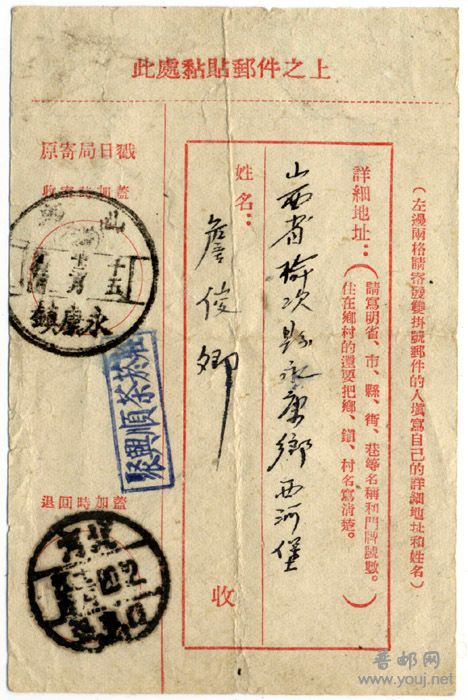 此處黏貼郵件之上
（左邊兩格請寄發雙掛號郵件的人塡寫自己的詳細地址和姓名）
詳細地址：（請寫明省、市、縣、街、巷等名稱和門牌號數。
住在鄉村的還要把鄉、鎭、村名寫清楚。）
山西省榆次縣永康鄉西河堡
姓名：
詹俊卿
收
原寄局日戳
山
永康鎭
聚興順茶菸莊
退回時加蓋
晋邮网
www.youj.net